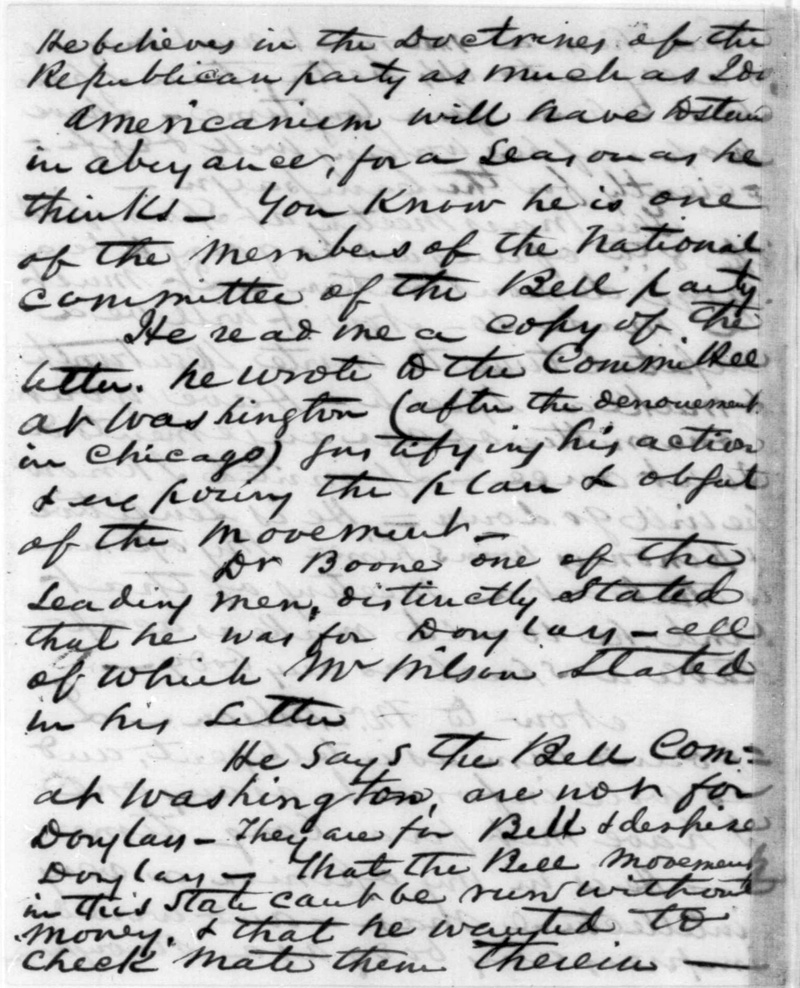 He believes in the Doctrines of the
Republican party as much as I do
Americanism will have to stand
in abeyance, for a Season as he
thinks — You Know he is one
of the Members of the National
committee of the Bell party
He read me a copy of the
letter. he wrote to the Committee
at Washington (after the denouement
in Chicago) Justifying his action
& exposing the plan & object
of the movement. —
Dr Boone one of the
Leading men, distinctly Stated
that he was for Douglass — all
of which Mr Wilson Stated
in his Letter
He Says the Bell Com=
at Washington, are not for
Douglass — They are for Bell & despise
Douglass — That the Bell Movement
in this State cant be run without
Money. & that he wanted to
check mate them therein —